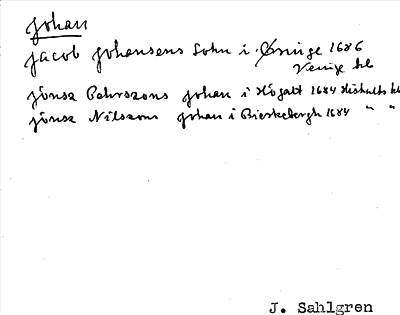 Johan
Jacob Johansens Sohn i Öninge 1686
Veinge hd
Jönsz Behrszons Johan i Högalt 1684 Höshults hd
Jönsz Nilszons Johan i Bierkebergh 1684 " "
J. Sahlgren